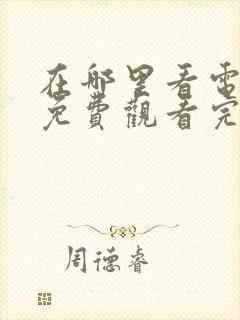 在哪里看電
免費觀看完
周德睿